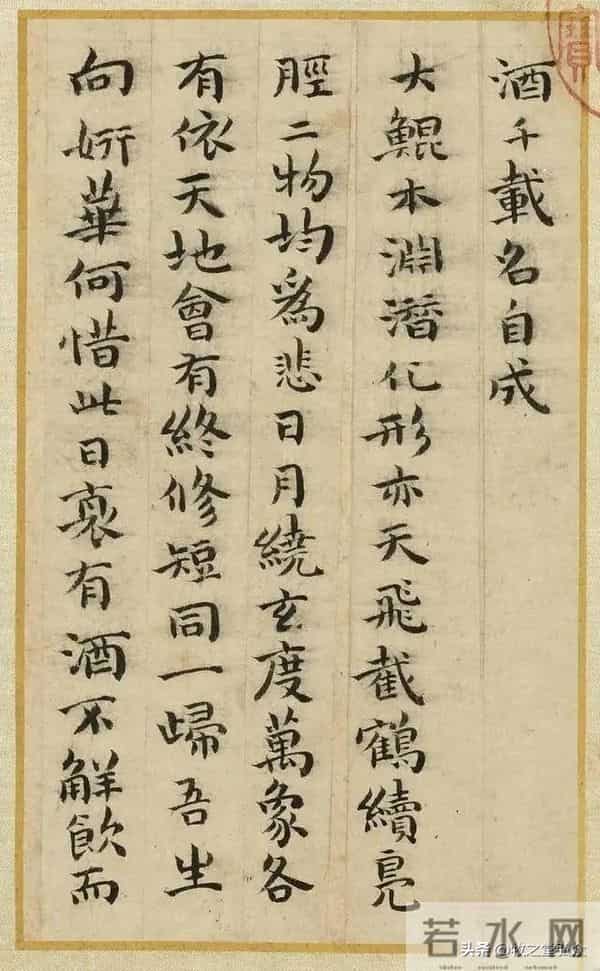 酒千載名自成
大鯤本淵潛化形亦天飛截鶴續鳧
脛二物均爲悲日月繞玄度萬象各
有依天地會有終修短同一歸吾生
向妍華何惜此日衰有酒不解飲而
寶
若水网
头条 @牧之堂